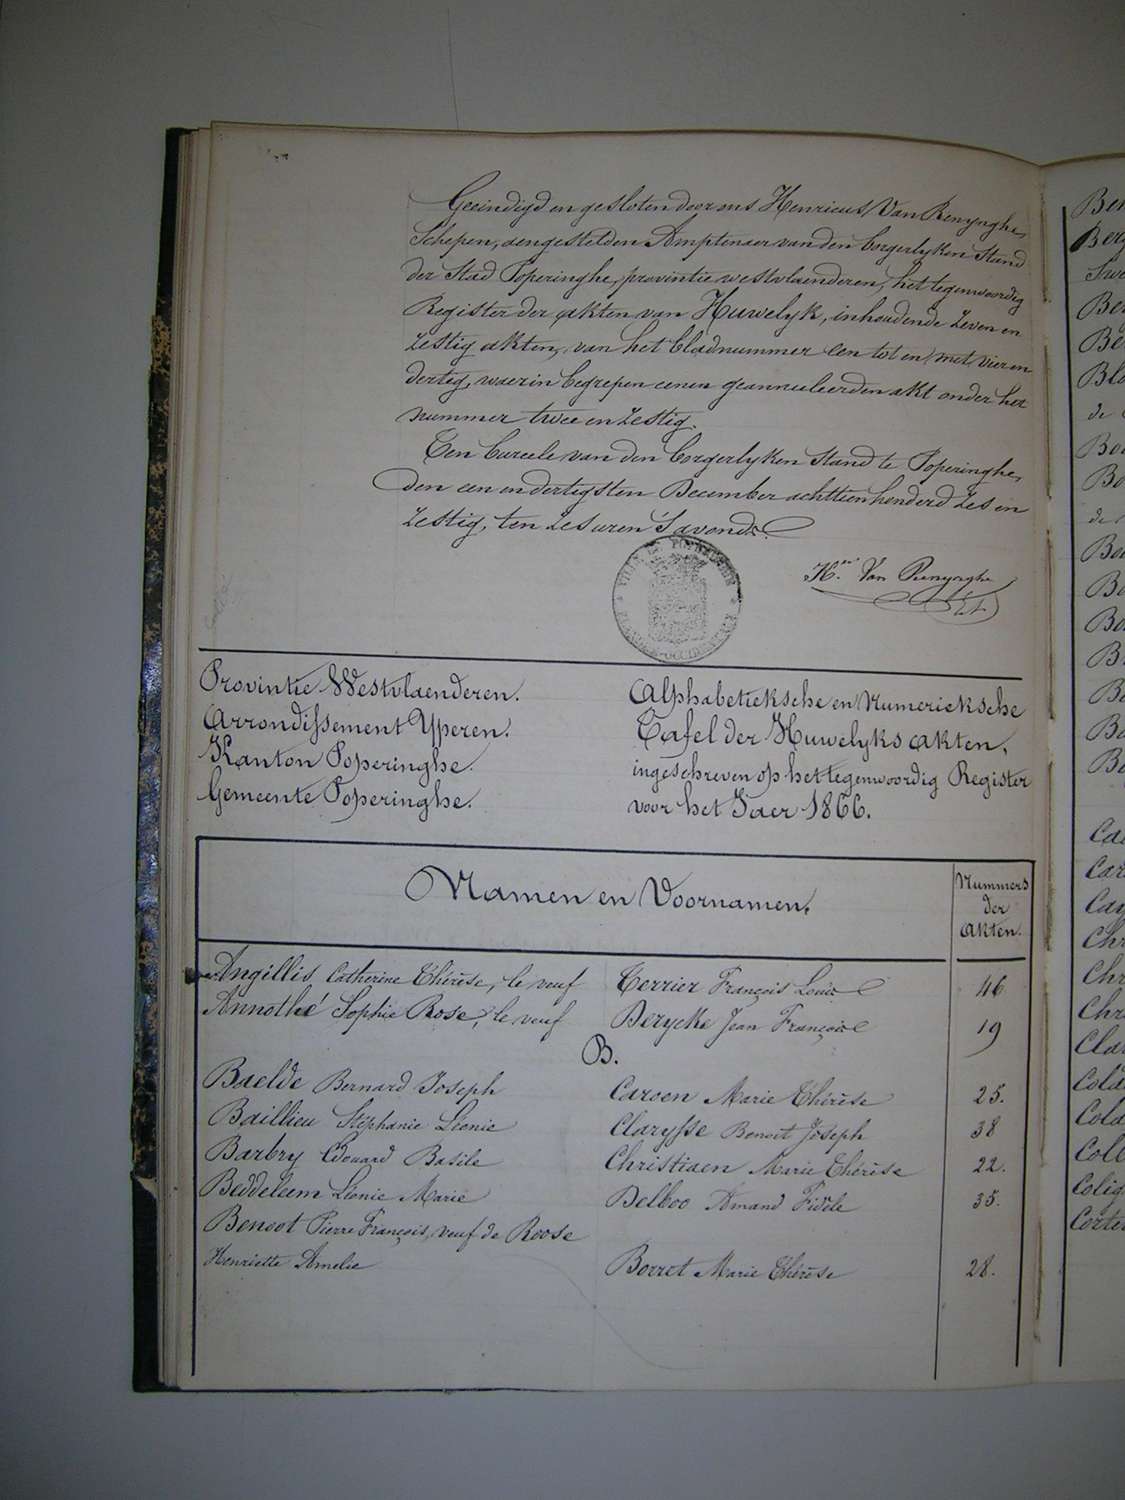 Geeindigd en gesloten door ons Henricus Van Renynghe,
Schepen, aengestelden Amptenaer van den borgerlyken Stand
der Stad Poperinghe, provintie westvlaenderen, het tegenwoordig
Register der akten van Huwelyk, inhoudende zeven en
zestig akten, van het bladnummer een tot en met vier en
dertig, waerin begrepen eenen geannuleerden akt onder het
nummer twee en zestig.
Ten bureele van den borgerlyken Stand te Poperinghe,
den een en dertigsten December achttien honderd zes en
zestig, ten zes uren 's avonds.
Hri Van Renynghe
VILLE DE POPERINGHE
FLANDRE-OCCIDENTALE
Provintie Westvlaenderen.
Arrondissement Yperen.
Kanton Poperinghe.
Gemeente Poperinghe.
Alphabetieksche en Numerieksche
Tafel der Huwelyks akten,
ingeschreven op het tegenwoordig Register
voor het Jaer 1866.
Namen en Voornamen.
Nummers
der
akten.
Angillis Catherine Thérèse, le veuf Terrier François Louis 46
Annothé Sophie Rose, le veuf Derycke Jean François 19
B.
Baelde Bernard Joseph Caroen Marie Thérèse 25.
Baillieu Stéphanie Léonie Clarysse Benoit Joseph 38
Barbry Edouard Basile Christiaen Marie Thérèse 22.
Beddeleem Léonie Marie Delboo Amand Fidèle 35.
Benoot Pierre François, veuf de Roose
Henriette Amelie Borret Marie Thérèse 28.